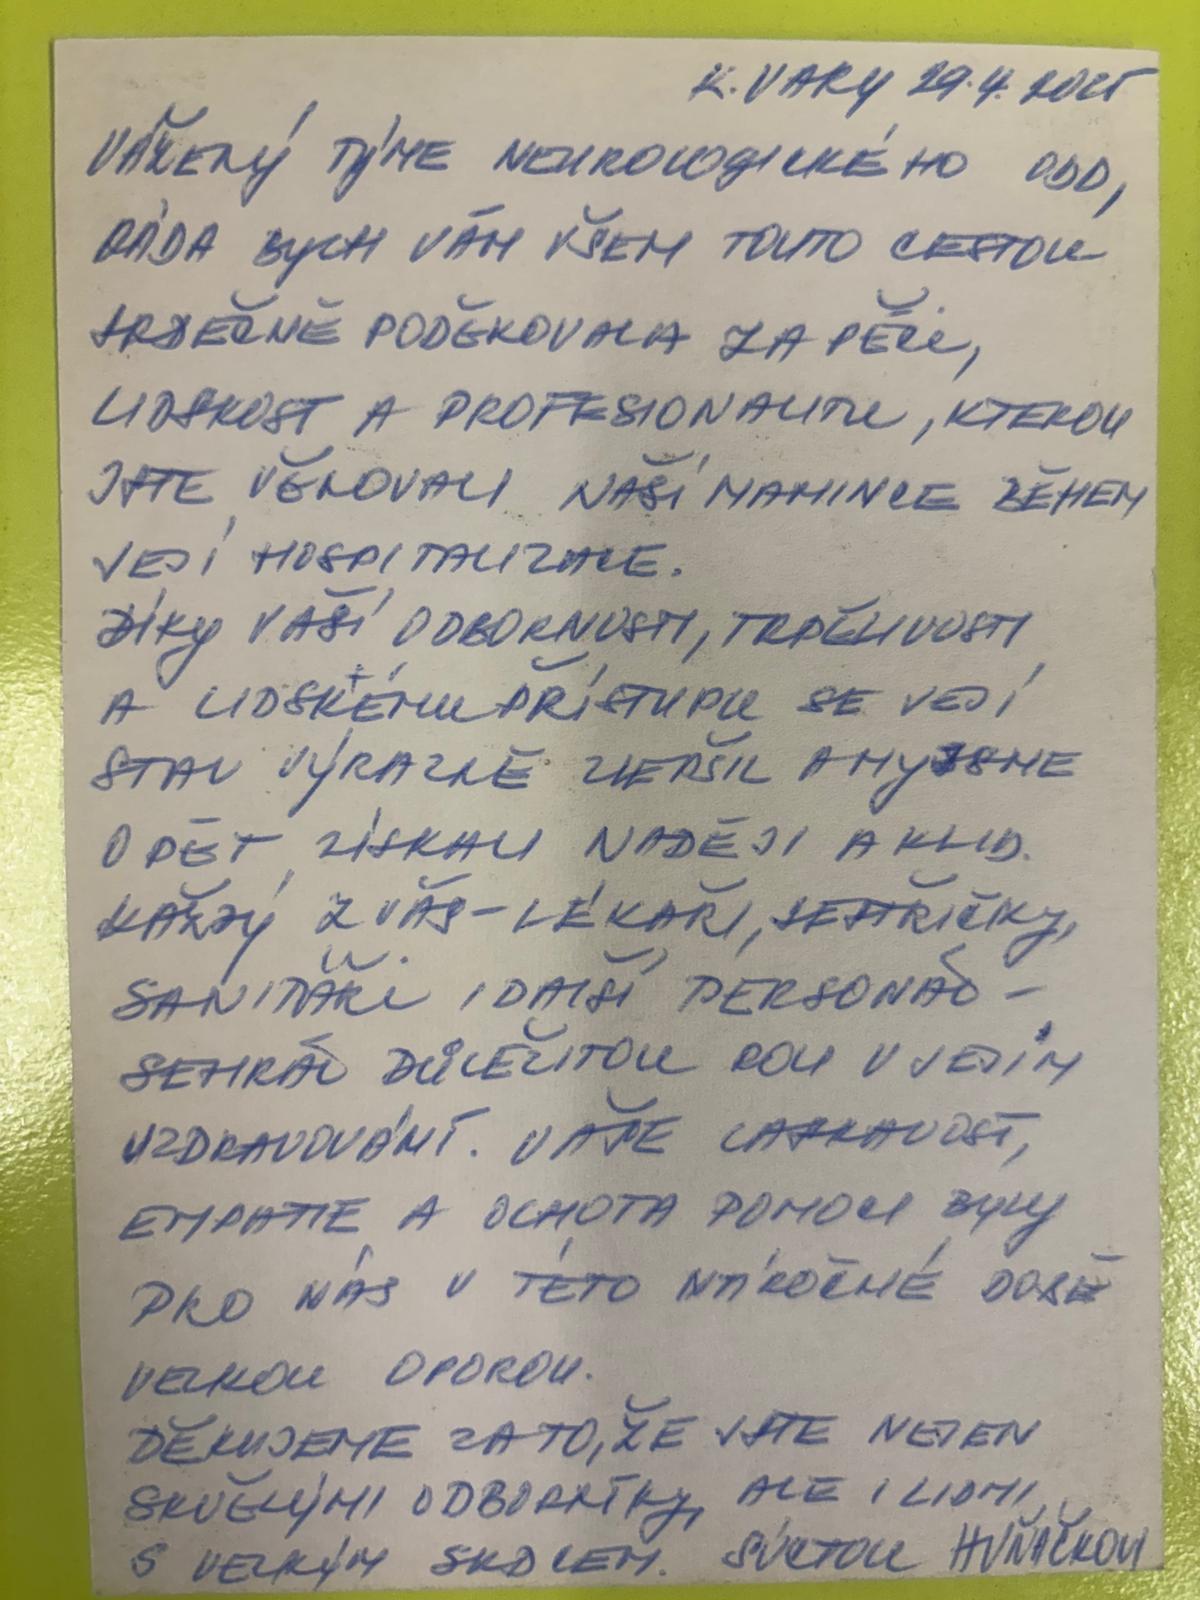 K. VARY 29.4. 2025
VÁŽENÝ TÝME NEUROLOGICKÉHO ODD,
RÁDA BYCH VÁM VŠEM TOUTO CESTOU
SRDEČNĚ PODĚKOVALA ZA PÉČI,
LIDSKOST A PROFESIONALITU, KTEROU
JSTE VĚNOVALI NAŠÍ MAMINCE BĚHEM
JEJÍ HOSPITALIZACE.
DÍKY VAŠÍ ODBORNOSTI, TRPĚLIVOSTI
A LIDSKÉMU PŘÍSTUPU SE JEJÍ
STAV VÝRAZNĚ ZLEPŠIL A MY JSME
OPĚT ZÍSKALI NADĚJI A KLID.
KAŽDÝ Z VÁS - LÉKAŘI, SESTŘIČKY,
SANITÁŘI I DALŠÍ PERSONÁL -
SEHRÁL DŮLEŽITOU ROLI V JEJÍM
UZDRAVOVÁNÍ. VAŠE LASKAVOST,
EMPATIE A OCHOTA POMOCI BYLY
PRO NÁS V TÉTO NÁROČNÉ DOBĚ
VELKOU OPOROU.
DĚKUJEME ZA TO, ŽE JSTE NEJEN
SKVĚLÝMI ODBORNÍKY, ALE I LIDMI
S VELKÝM SRDCEM. S ÚCTOU